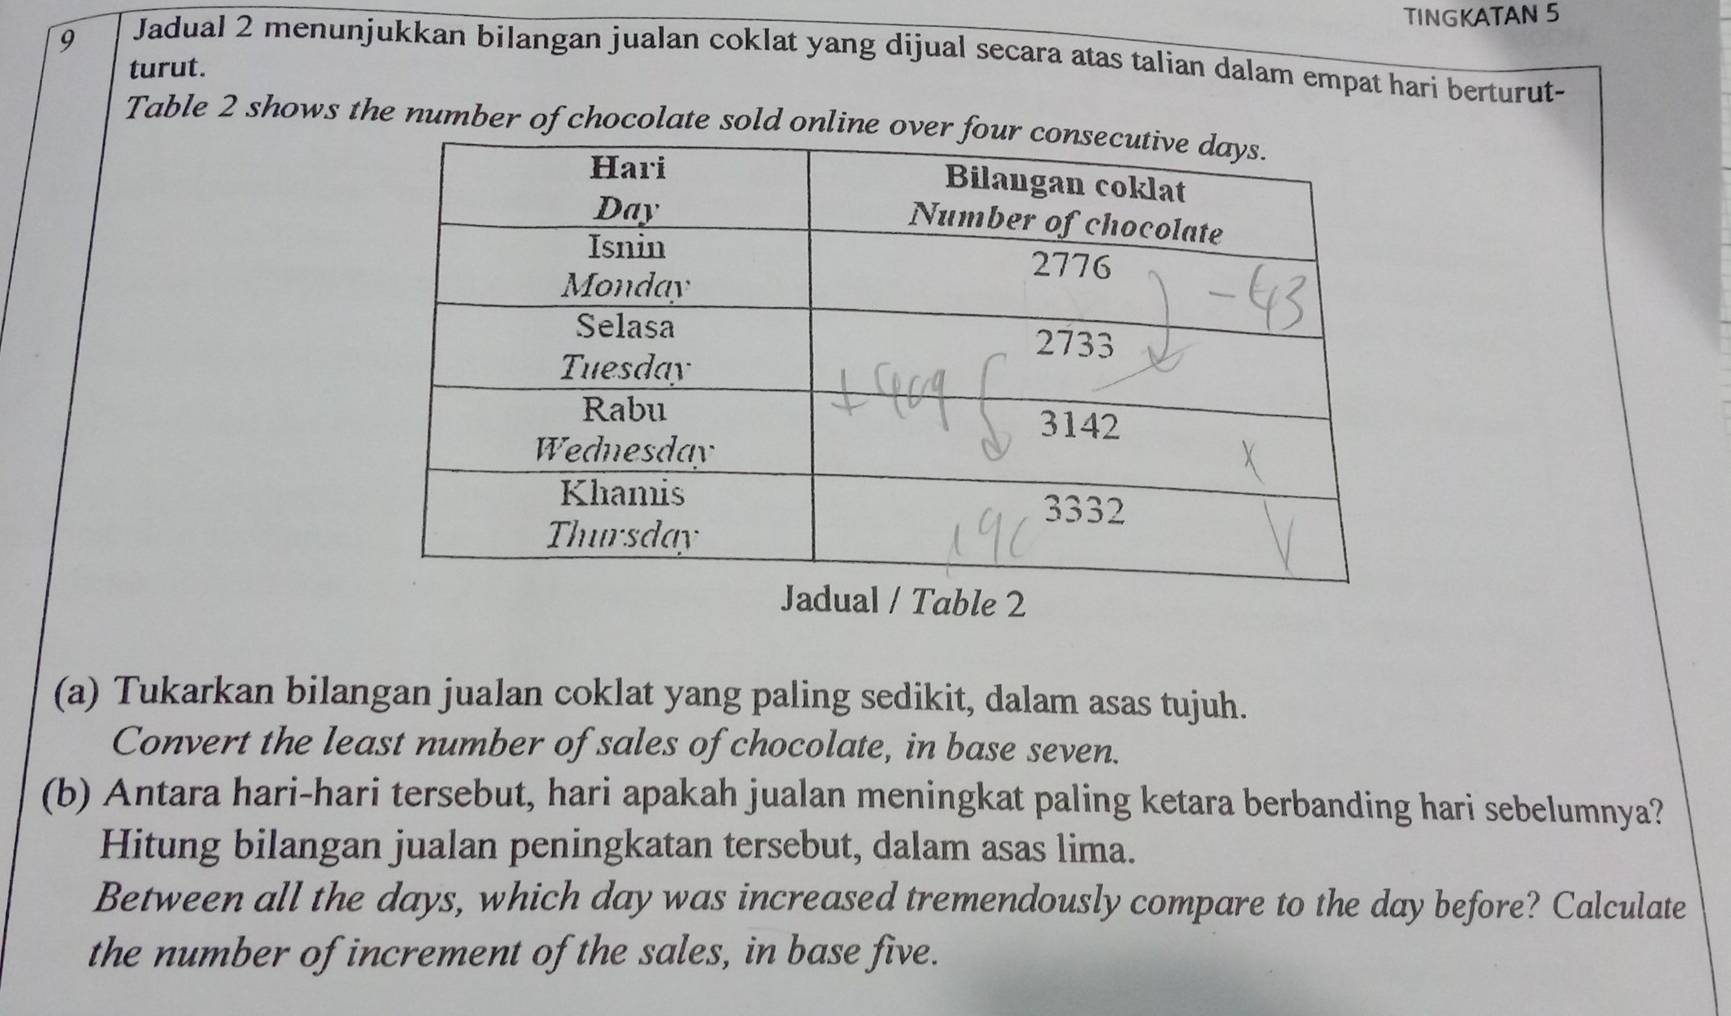 TINGKATAN 5
9 Jadual 2 menunjukkan bilangan jualan coklat yang dijual secara atas talian dalam empat hari berturut-
turut.
Table 2 shows the number of chocolate sold online over four consecutive days.
Hari Bilangan coklat
Day Number of chocolate
Isnin 2776
Monday -43
Selasa 2733
Tuesday
+409
Rabu 3142
Wednesday x
Khamis 3332
Thursday 190
Jadual / Table 2
(a) Tukarkan bilangan jualan coklat yang paling sedikit, dalam asas tujuh.
Convert the least number of sales of chocolate, in base seven.
(b) Antara hari-hari tersebut, hari apakah jualan meningkat paling ketara berbanding hari sebelumnya?
Hitung bilangan jualan peningkatan tersebut, dalam asas lima.
Between all the days, which day was increased tremendously compare to the day before? Calculate
the number of increment of the sales, in base five.